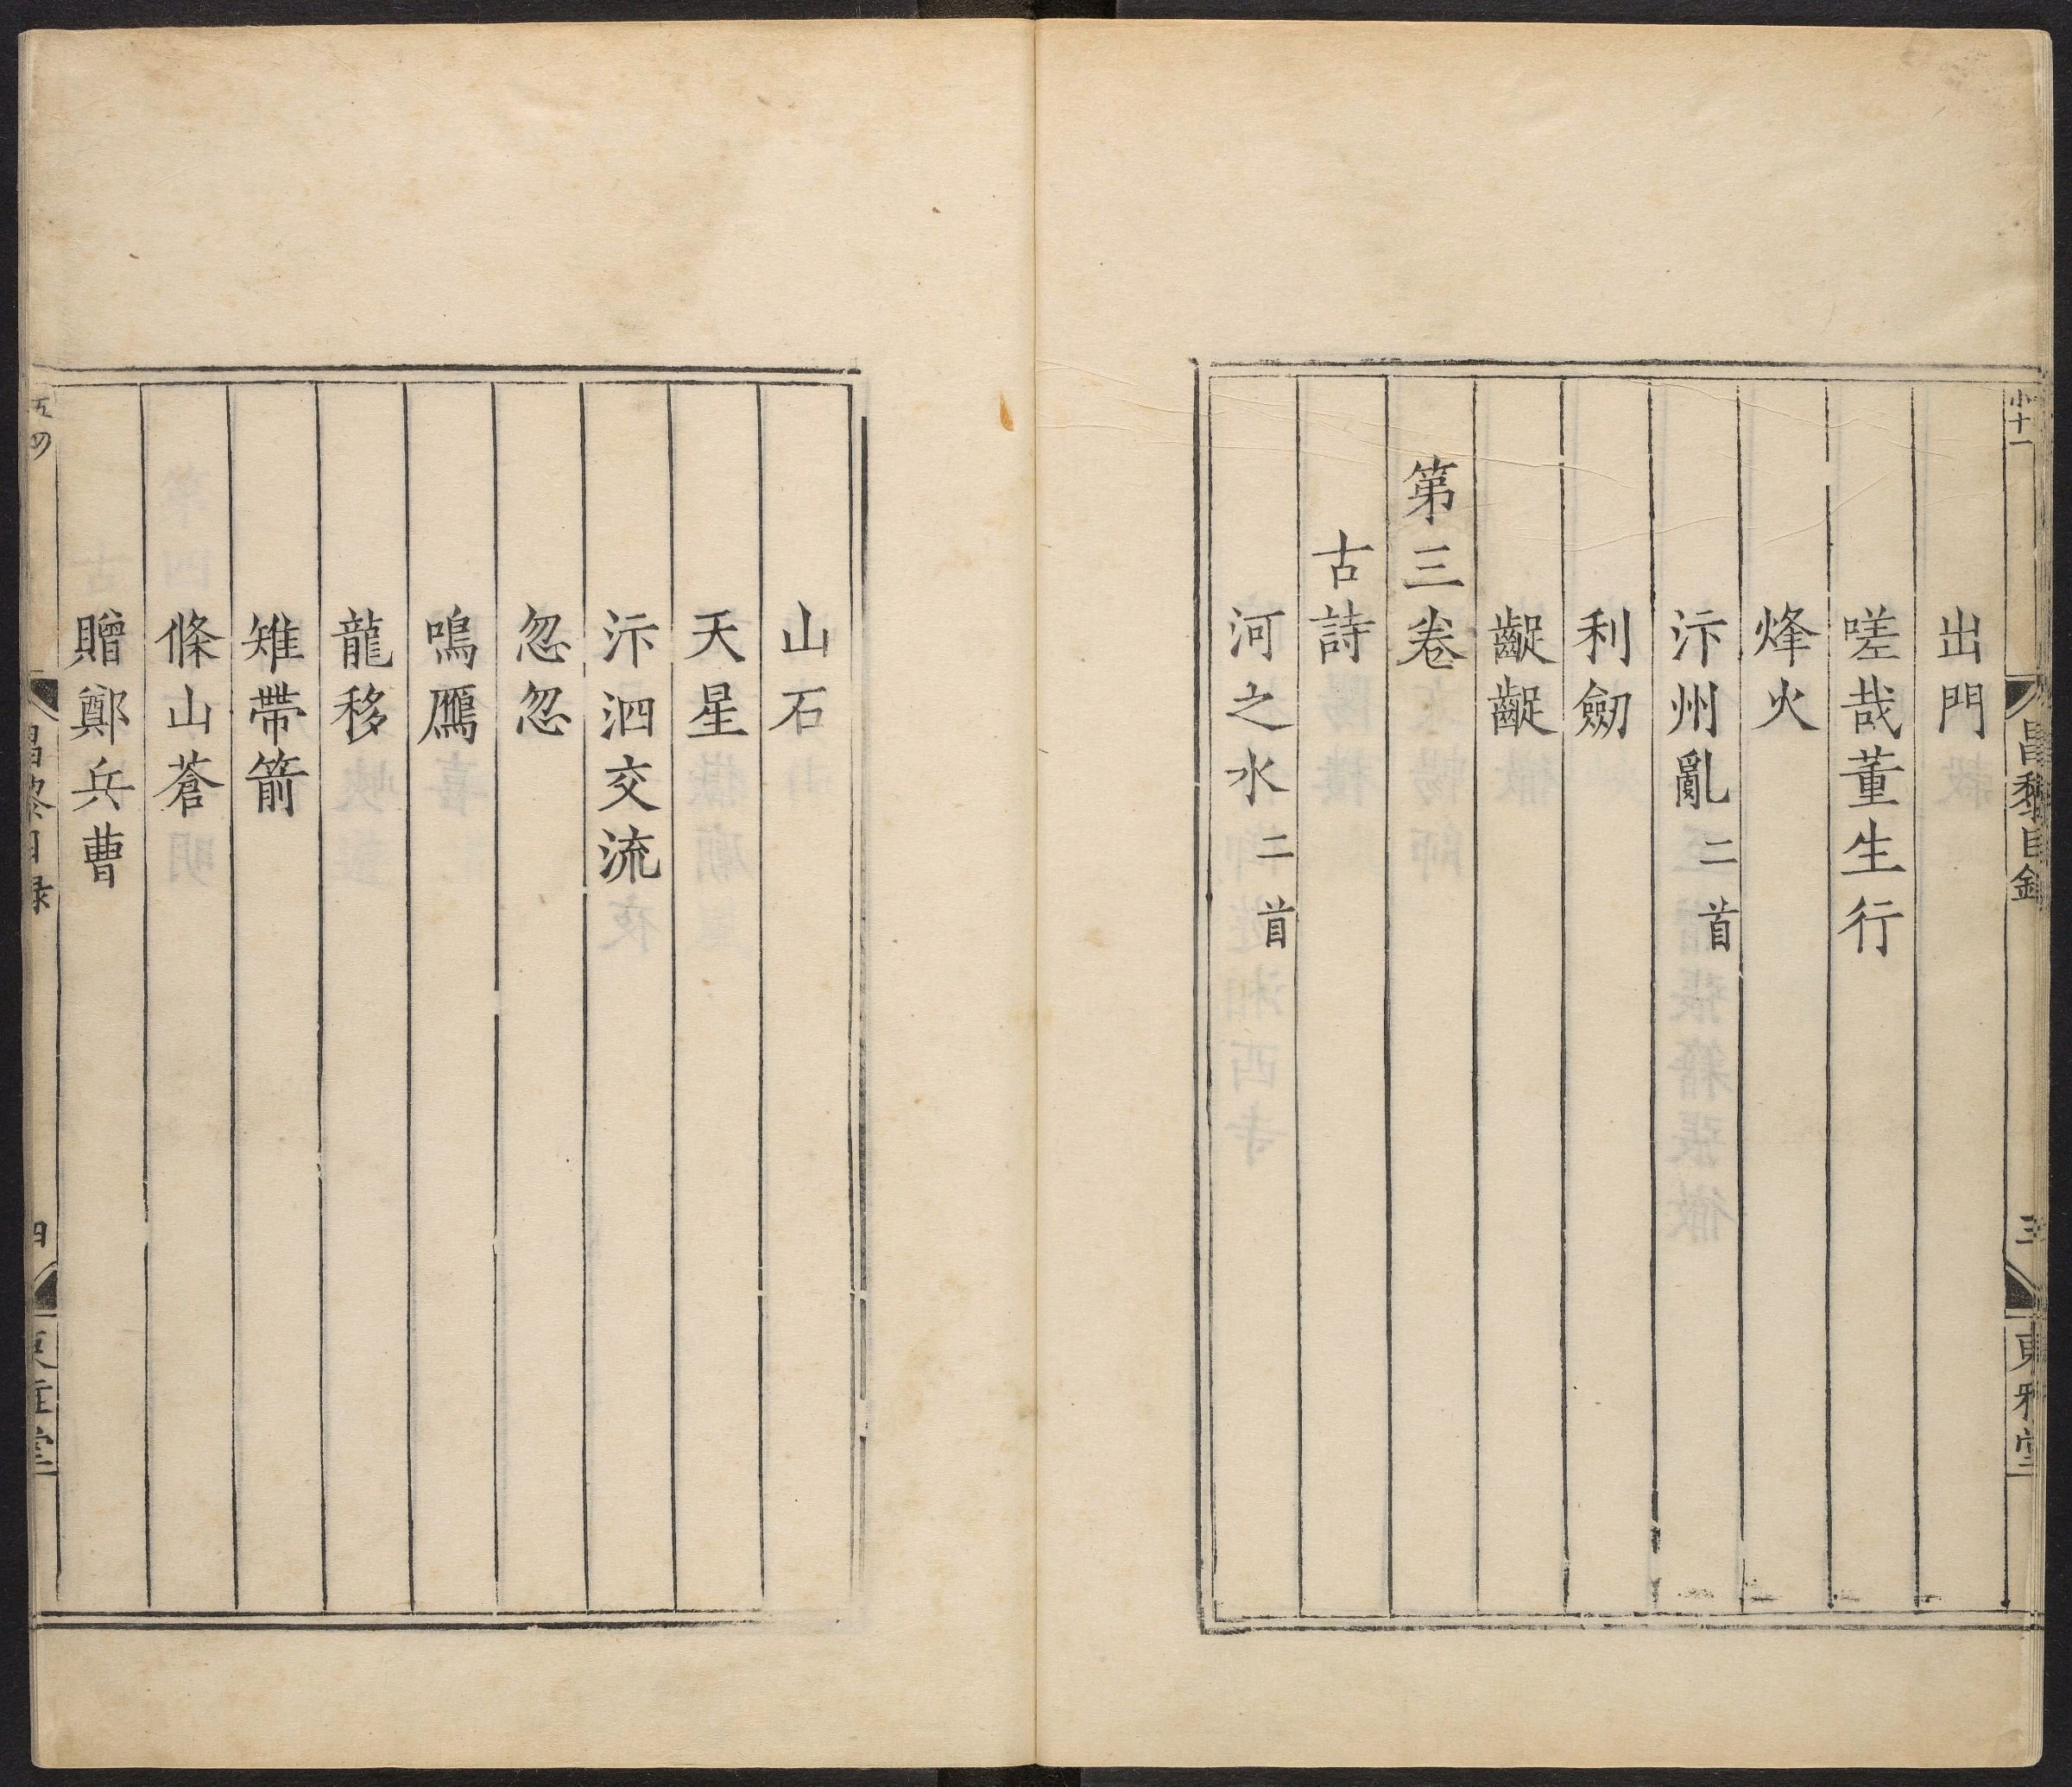 小十一
昌黎目錄
三
東雅堂
出門
嗟哉董生行
烽火
汴州亂二首
利劒
齪齪
第三卷
古詩
河之水二首
山石
天星
汴泗交流
忽忽
鳴鴈
龍移
雉帶箭
條山蒼
贈鄭兵曹
昌黎目録
四